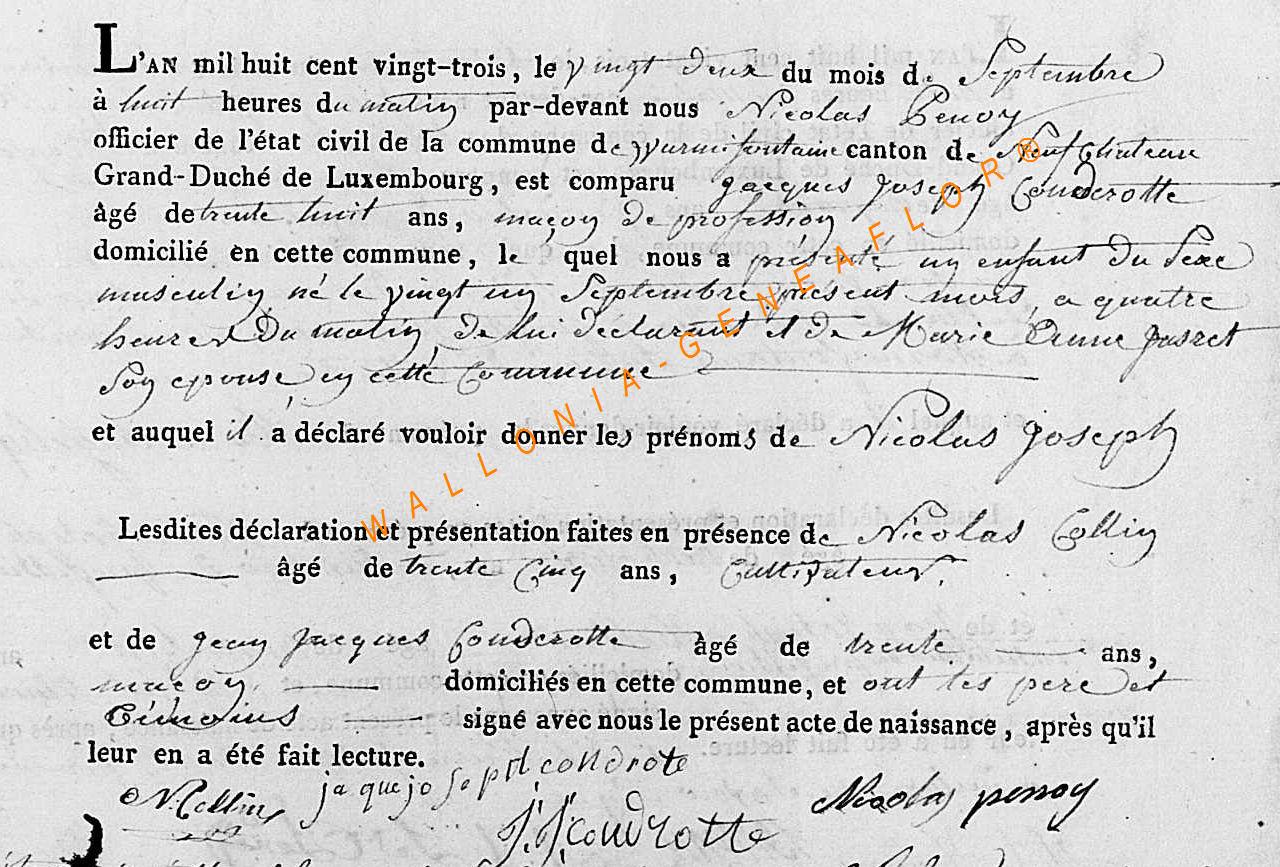 L'AN mil huit cent vingt-trois, le vingt deux du mois de Septembre
à huit heures du matin par-devant nous Nicolas Penoy
officier de l'état civil de la commune de Wurmifontaine canton de Neufchateau
Grand-Duché de Luxembourg, est comparu Jacques Joseph Conderotte
âgé de trente huit ans, maçon de profession
domicilié en cette commune, le quel nous a présenté un enfant du Sexe
masculin né le vingt un Septembre présent mois, a quatre
heures Du matin, de lui déclarant et de Marie Anne
Son epouse en cette Commune
et auquel il a déclaré vouloir donner les prénoms de Nicolas Joseph
Lesdites déclaration et présentation faites en présence de Nicolas Collin
âgé de trente Cinq ans, Cultivateur,
et de Jean Jacques Conderotte âgé de trente ans,
maçon, domiciliés en cette commune, et ont les pere et
témoins signé avec nous le présent acte de naissance, après qu'il
leur en a été fait lecture.
N. Collin jaque joseph condrote Nicolas penoy
J. J. Condrotte
WALLONIA-GENEAFLOR®